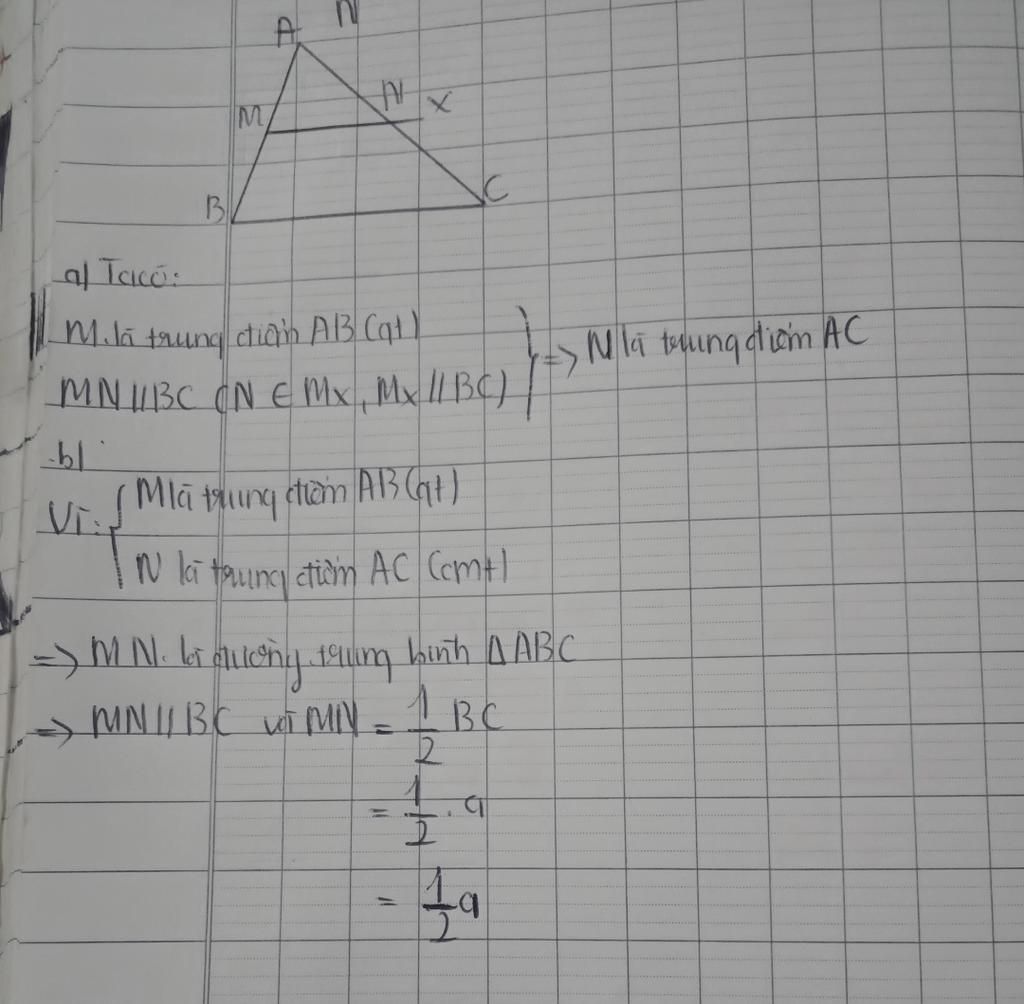 N
A
M N x
B C
a) Ta có:
M là trung điểm AB (gt)
MN // BC (N ∈ Mx, Mx // BC) } => N là trung điểm AC
b)
Vì: { M là trung điểm AB (gt)
N là trung điểm AC (cmt)
=> MN là đường trung bình Δ ABC
=> MN // BC và MN = 1/2 BC
= 1/2 . a
= 1/2 a